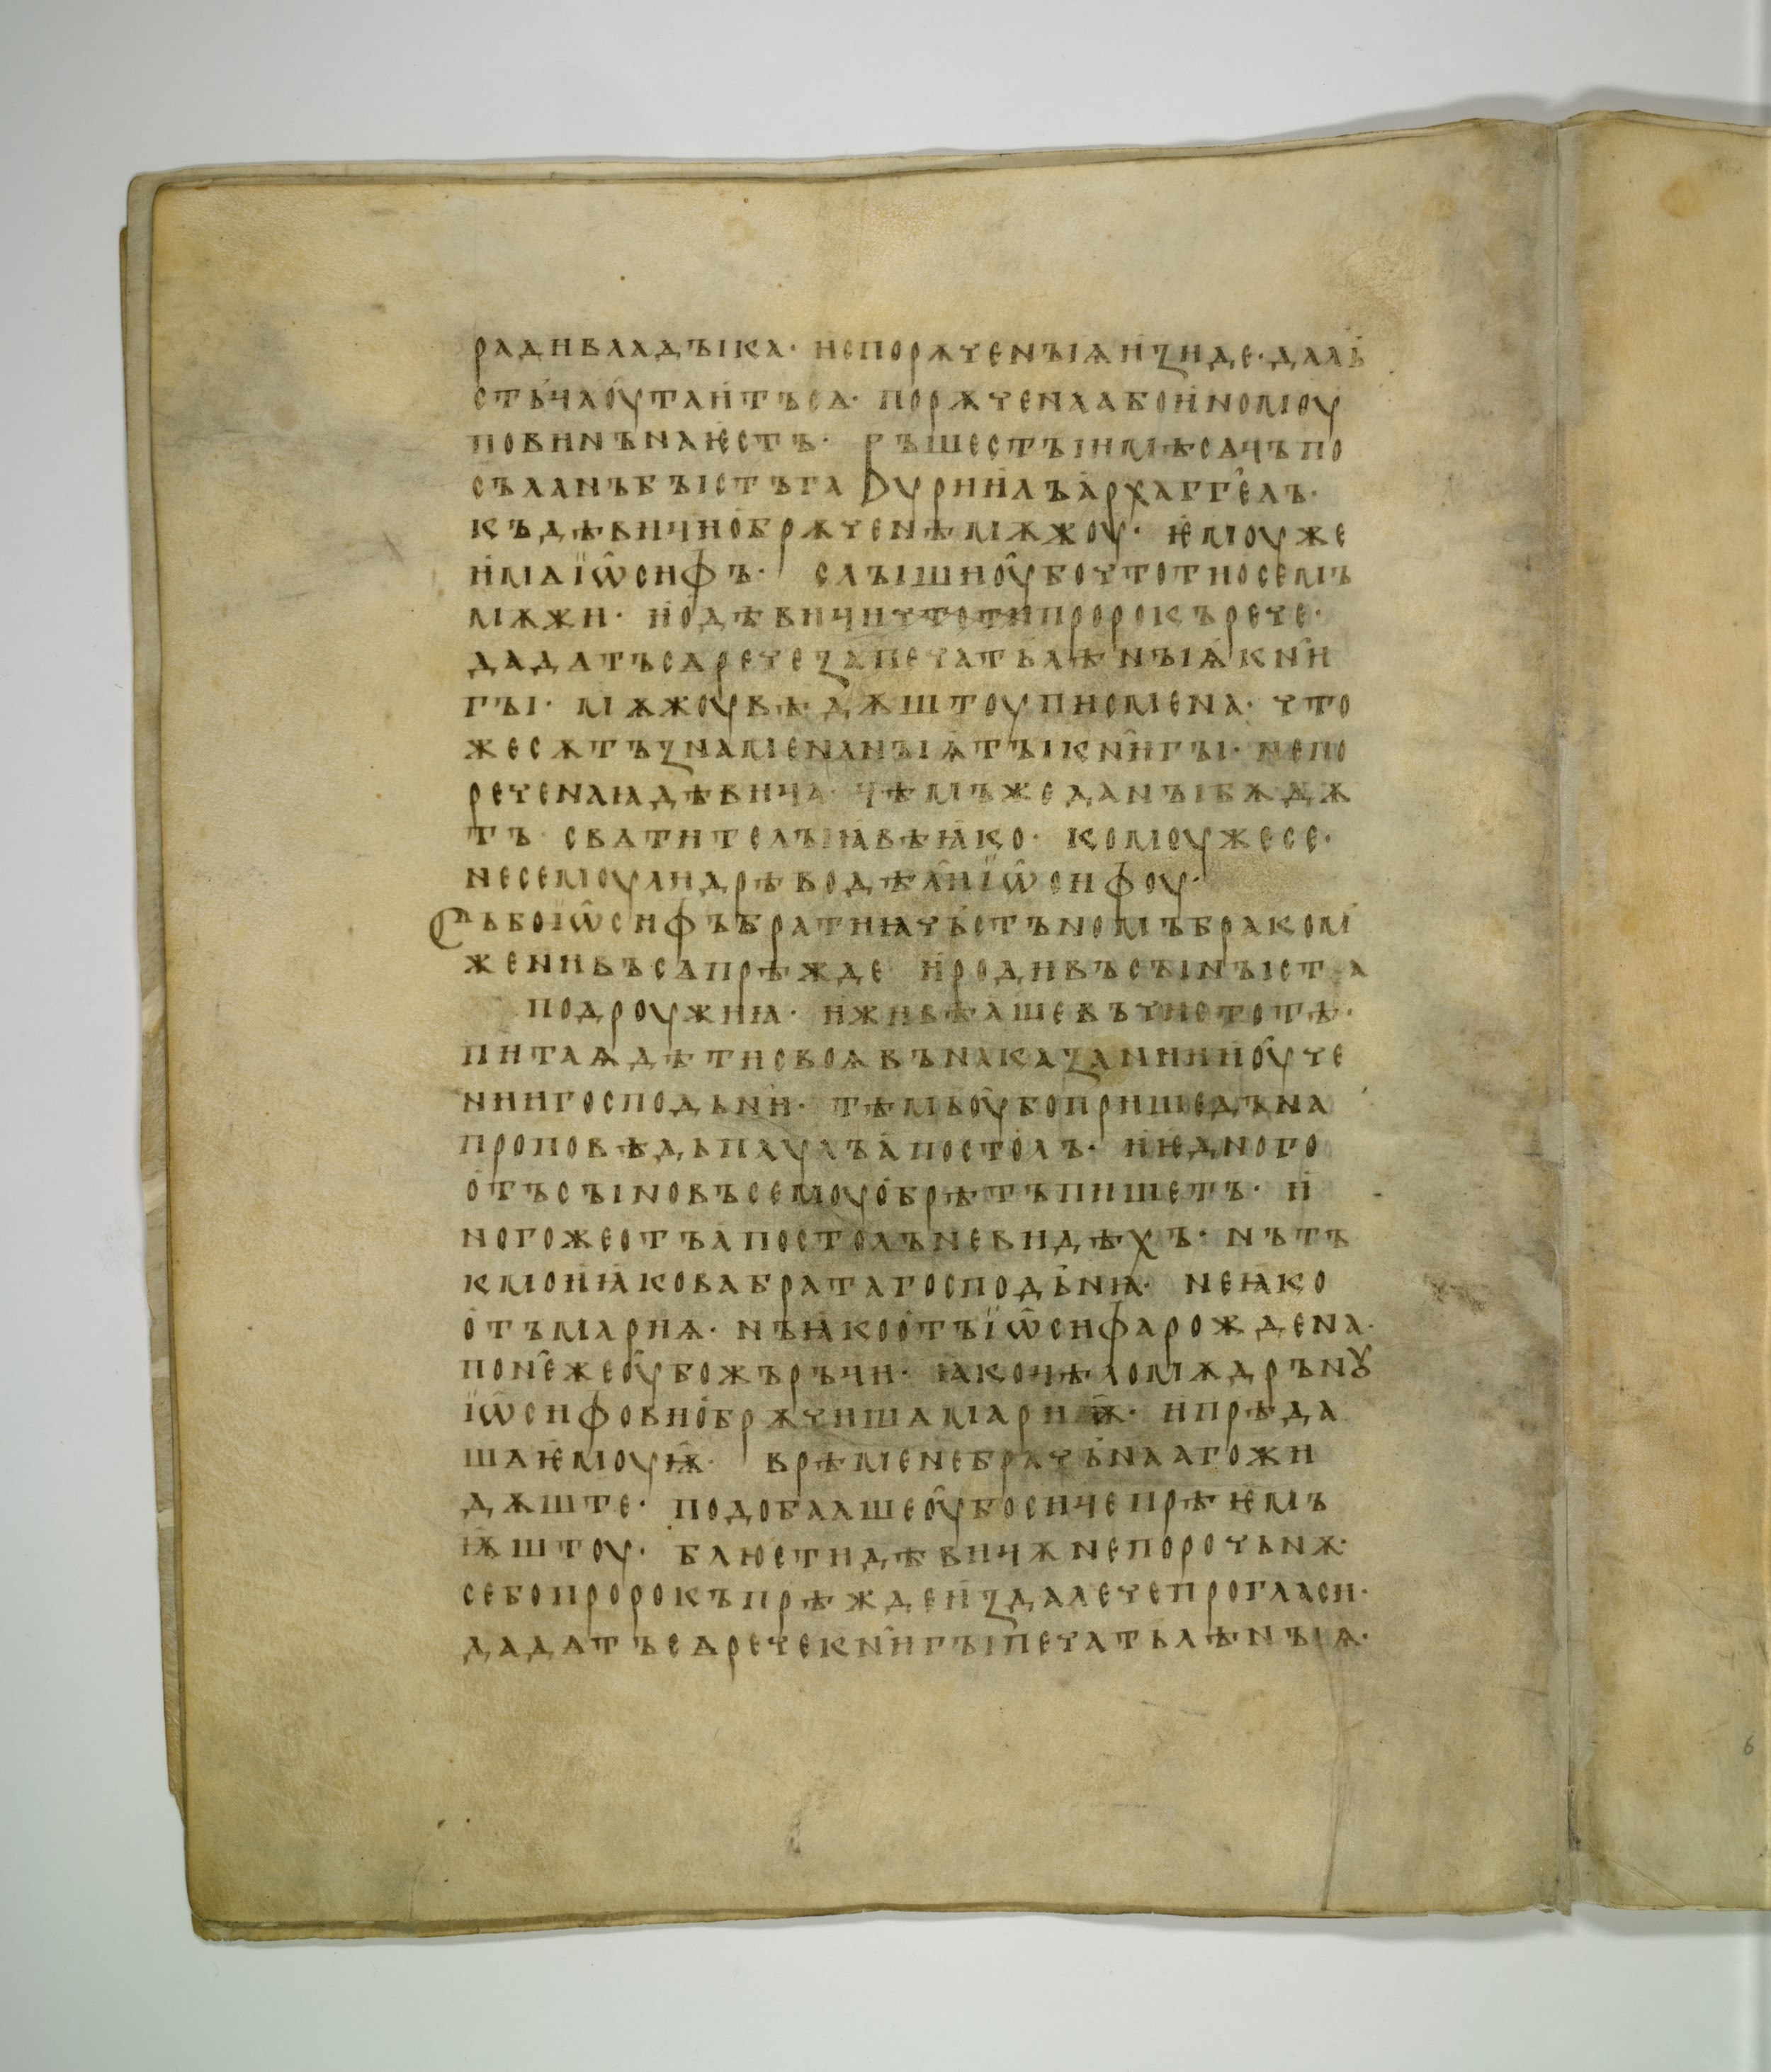 радивладꙑка· непорѫченꙑѩнꙁиде· далѣ
стъ҆чаоу҆таитъсѧ· порѫченаабоиномоу
повинънаѥстъ· въшестꙑимѣсѧцъпо
съланъбꙑстъгавꙋриилъа҆рхаггелъ·
къдѣвицио҆брѫченѣмѫжоу· ѥмоуже
и҆маїѡ҆сифъ· слꙑшиоу҆бочтотиосемъ
мѫжи· и҆одѣвицичтотипророкърече·
дадѧтъсѧречеꙁапечатьлѣнꙑѩкни
гꙑ· мѫжоувѣдѫштоуписмена· что
жесѫтъꙁнаменанꙑѩтꙑкнигꙑ· непо
реченаꙗдѣвица· цѣмъжеданꙑбѫдѫ
тъ· сватителъꙗвѣꙗко· комоужесе·
несемоулидрѣводѣлиїѡ҆сифоу·
Събоїѡ҆сифъбратиꙗчьстъномъбракомь
женивъсѧпрѣжде иродивъсꙑнꙑиста
подроужиꙗ· иживѣашевъчистотѣ·
питаѧдѣтисвоѧвънакаꙁаниииоу҆че
ниигосподьни· тѣмьоу҆бопришедъна
проповѣдьпаулъапостолъ· иѥдного
отъсꙑновъсемоуо҆брѣтъпишетъ· и
ногожеотъапостолъневидѣхъ· нътъ
кмоиꙗковабратагосподьнꙗ· неꙗко
о҆тъмариѩ· нъꙗкоо҆тъїѡ҆сифарождена·
понежеоу҆божърьци· ꙗкоцѣломѫдрънꙋ
їѡ҆сифовио҆брѫчишамариѭ· ипрѣда
шаѥмоуѭ· врѣменебрачьнаагожи
дѫште· подобаашеоу҆босицепрѣѥмъ
ѭштоу· блюстидѣвицѫнепорочьнѫ·
себопророкъпрѣждеиꙁдалечепрогласи·
дадѧтъсѧречекнигꙑпечатьлѣнꙑѩ·